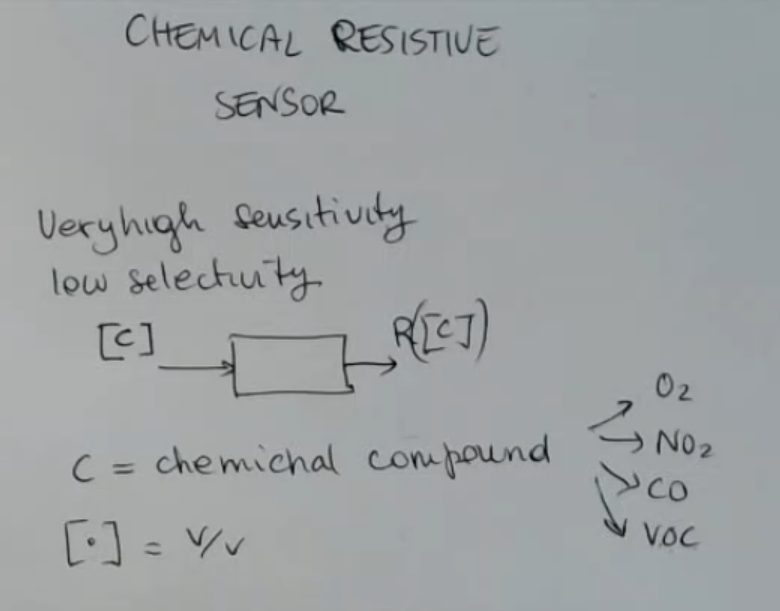 CHEMICAL RESISTIVE
SENSOR
Very high sensitivity
low selectivity
[C]
R([C])
C = chemichal compound
O2
NO2
CO
VOC
[·] = V/V